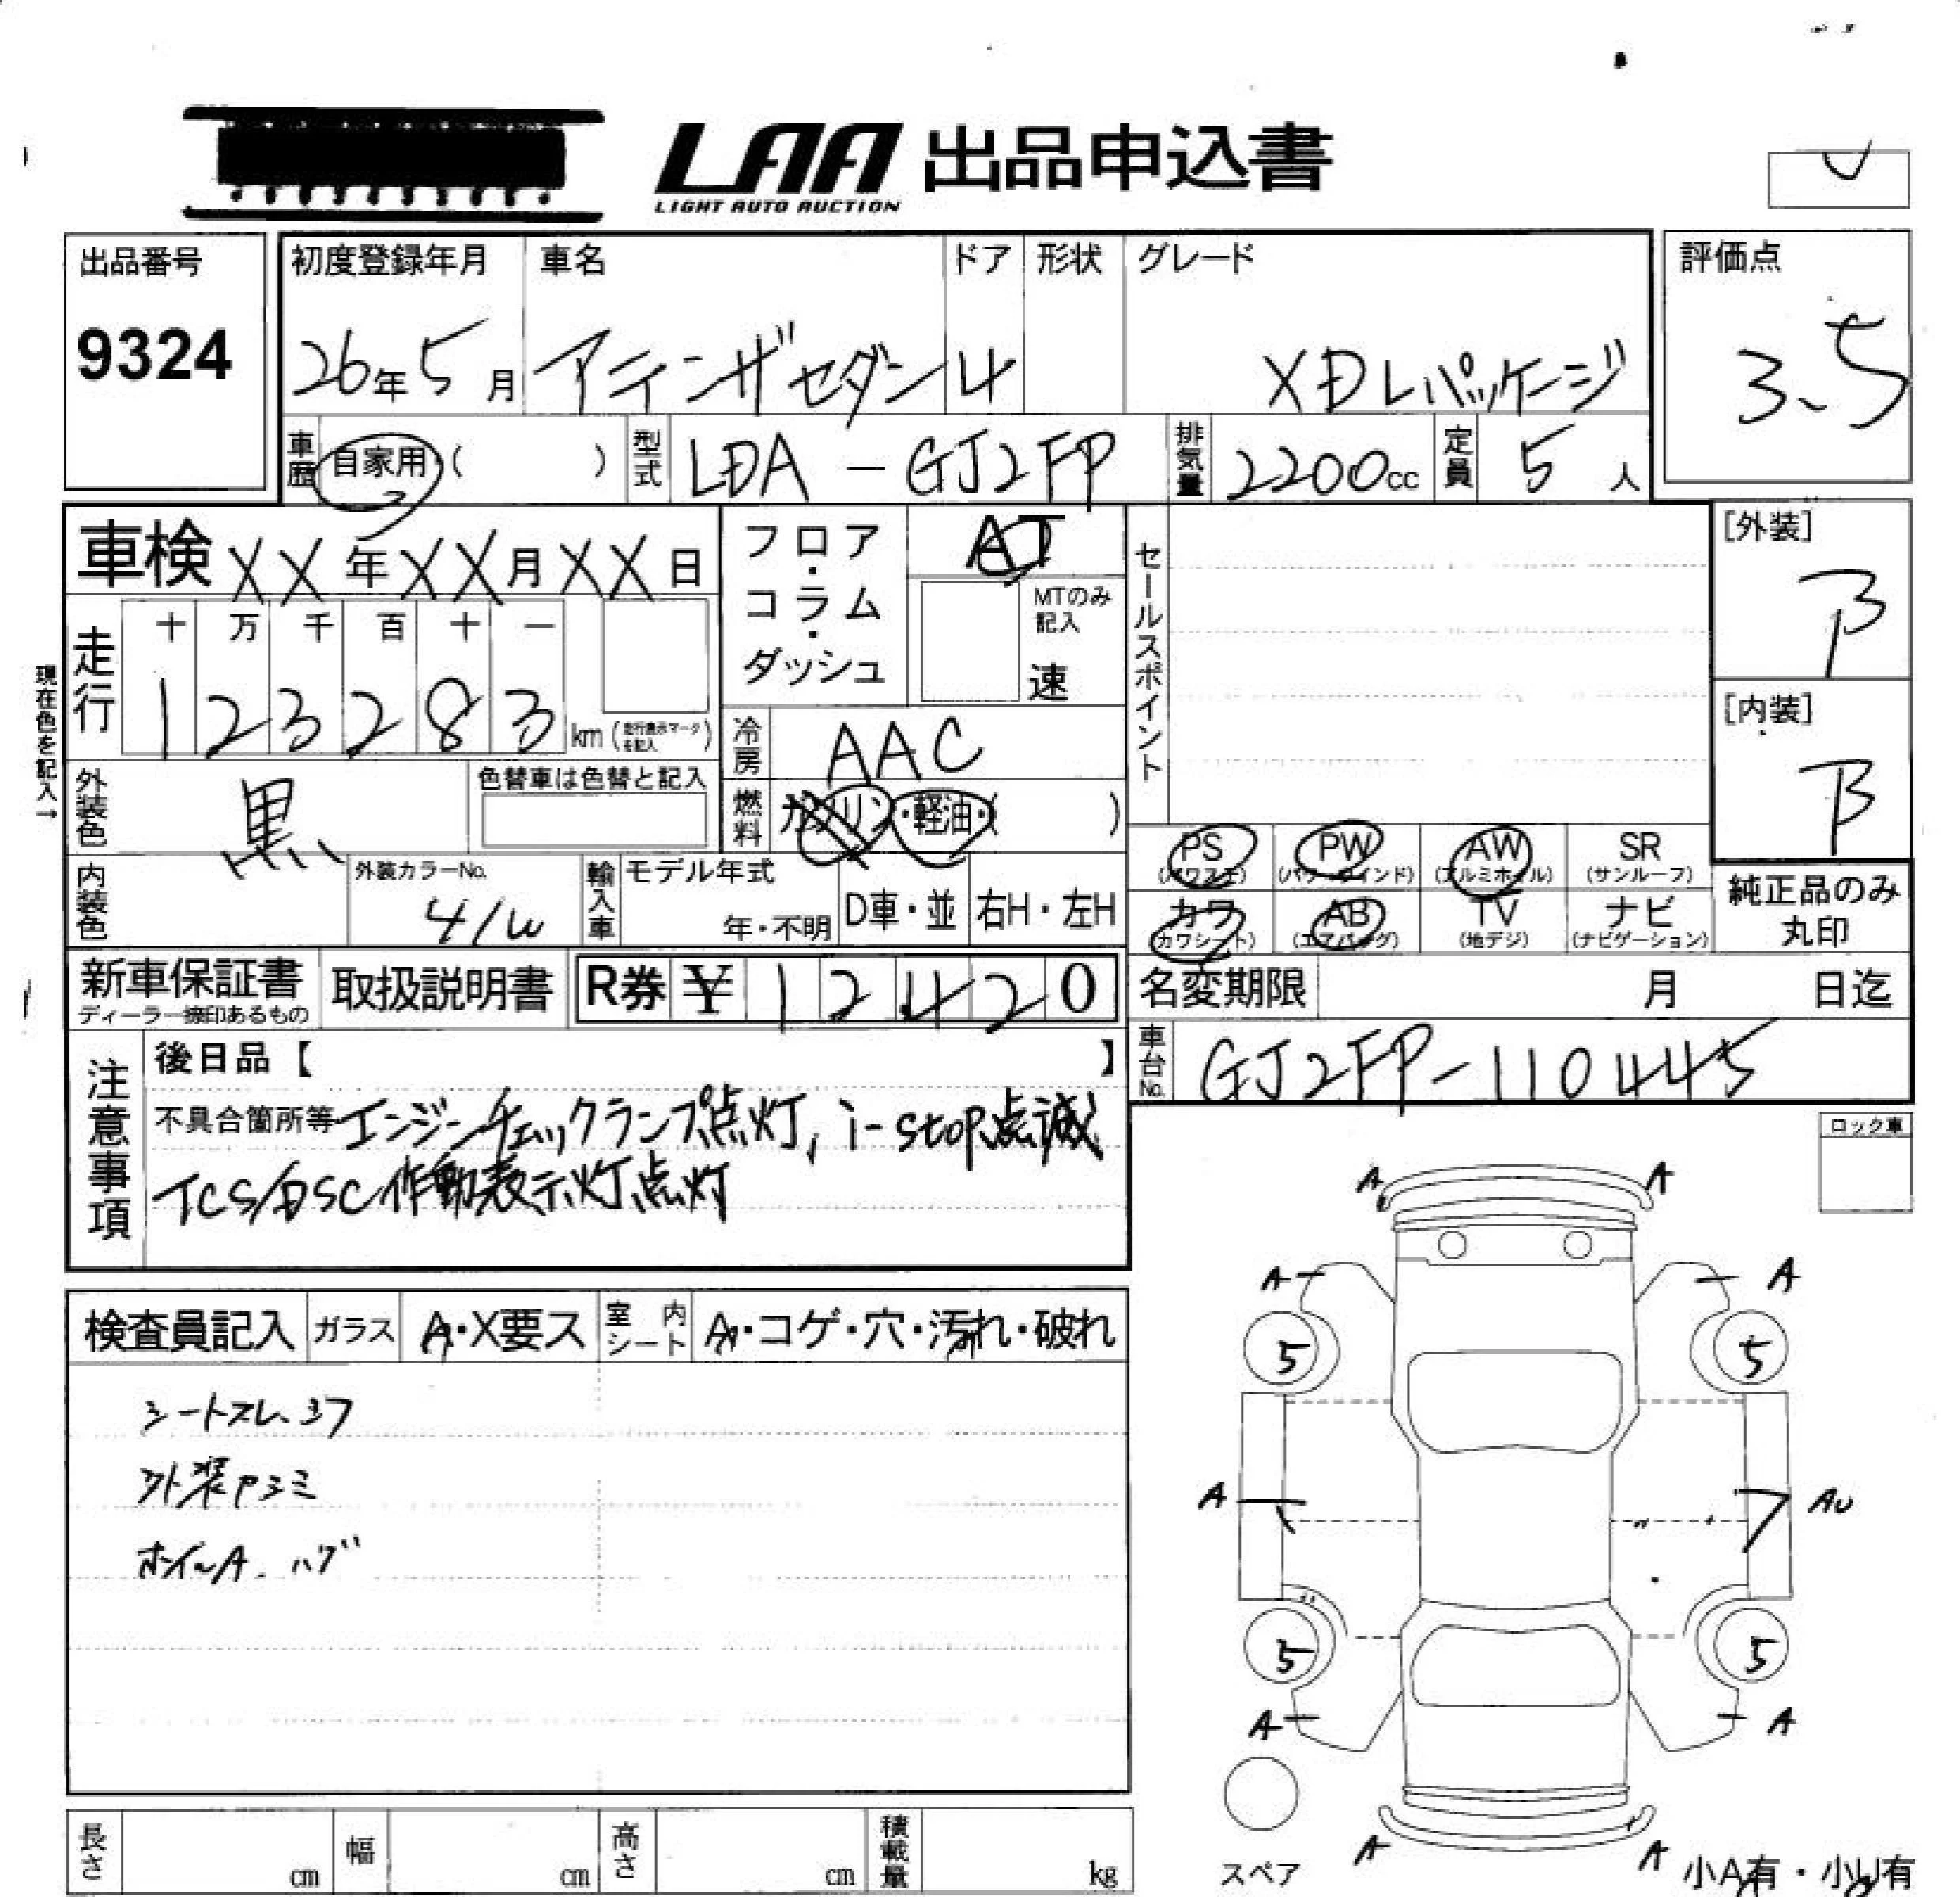 LAA 出品申込書
LIGHT AUTO AUCTION
出品番号 初度登録年月 車名 ドア 形状 グレード 評価点
9324 26年5月 アテンザセダン 4 XDLパッケージ 3.5
車歴 自家用・( ) 型式 LDA-GJ2FP 排気量 2200cc 定員 5人
車検 XX年XX月XX日 フロア・コラム・ダッシュ AT セールスポイント [外装]
B
MTのみ記入
速
走行 十 万 千 百 十 一
1 2 3 2 8 3 km (走行表示マークを記入)
現在色を記入→
[内装]
B
冷房 AAC
外装色 黒 色替車は色替と記入 燃料 ガソリン・軽油・( )
PS PW AW SR
(パワステ) (パワーウインド) (アルミホイル) (サンルーフ)
カワ AB TV ナビ
(カワシート) (エアバッグ) (地デジ) (ナビゲーション)
純正品のみ
丸印
内装色 外装カラーNo. 41W 輸入車 モデル年式 年・不明 D車・並 右H・左H
新車保証書 取扱説明書 R券 ¥ 1 2 4 2 0 名変期限 月 日迄
ディーラー捺印あるもの
車台No. GJ2FP-110445
注意事項
後日品【 】
不具合箇所等 エンジンチェックランプ点灯, i-stop点滅
TCS/DSC作動表示灯点灯
ロック車
検査員記入 ガラス A・X要ス 室内シート A・コゲ・穴・汚れ・破れ
シートスレ、シワ
外装
ホイールA. ハゲ
A A
A A
5 5
A AU
5 5
A A
A A
スペア
小A有・小U有
長さ cm 幅 cm 高さ cm 積載量 kg